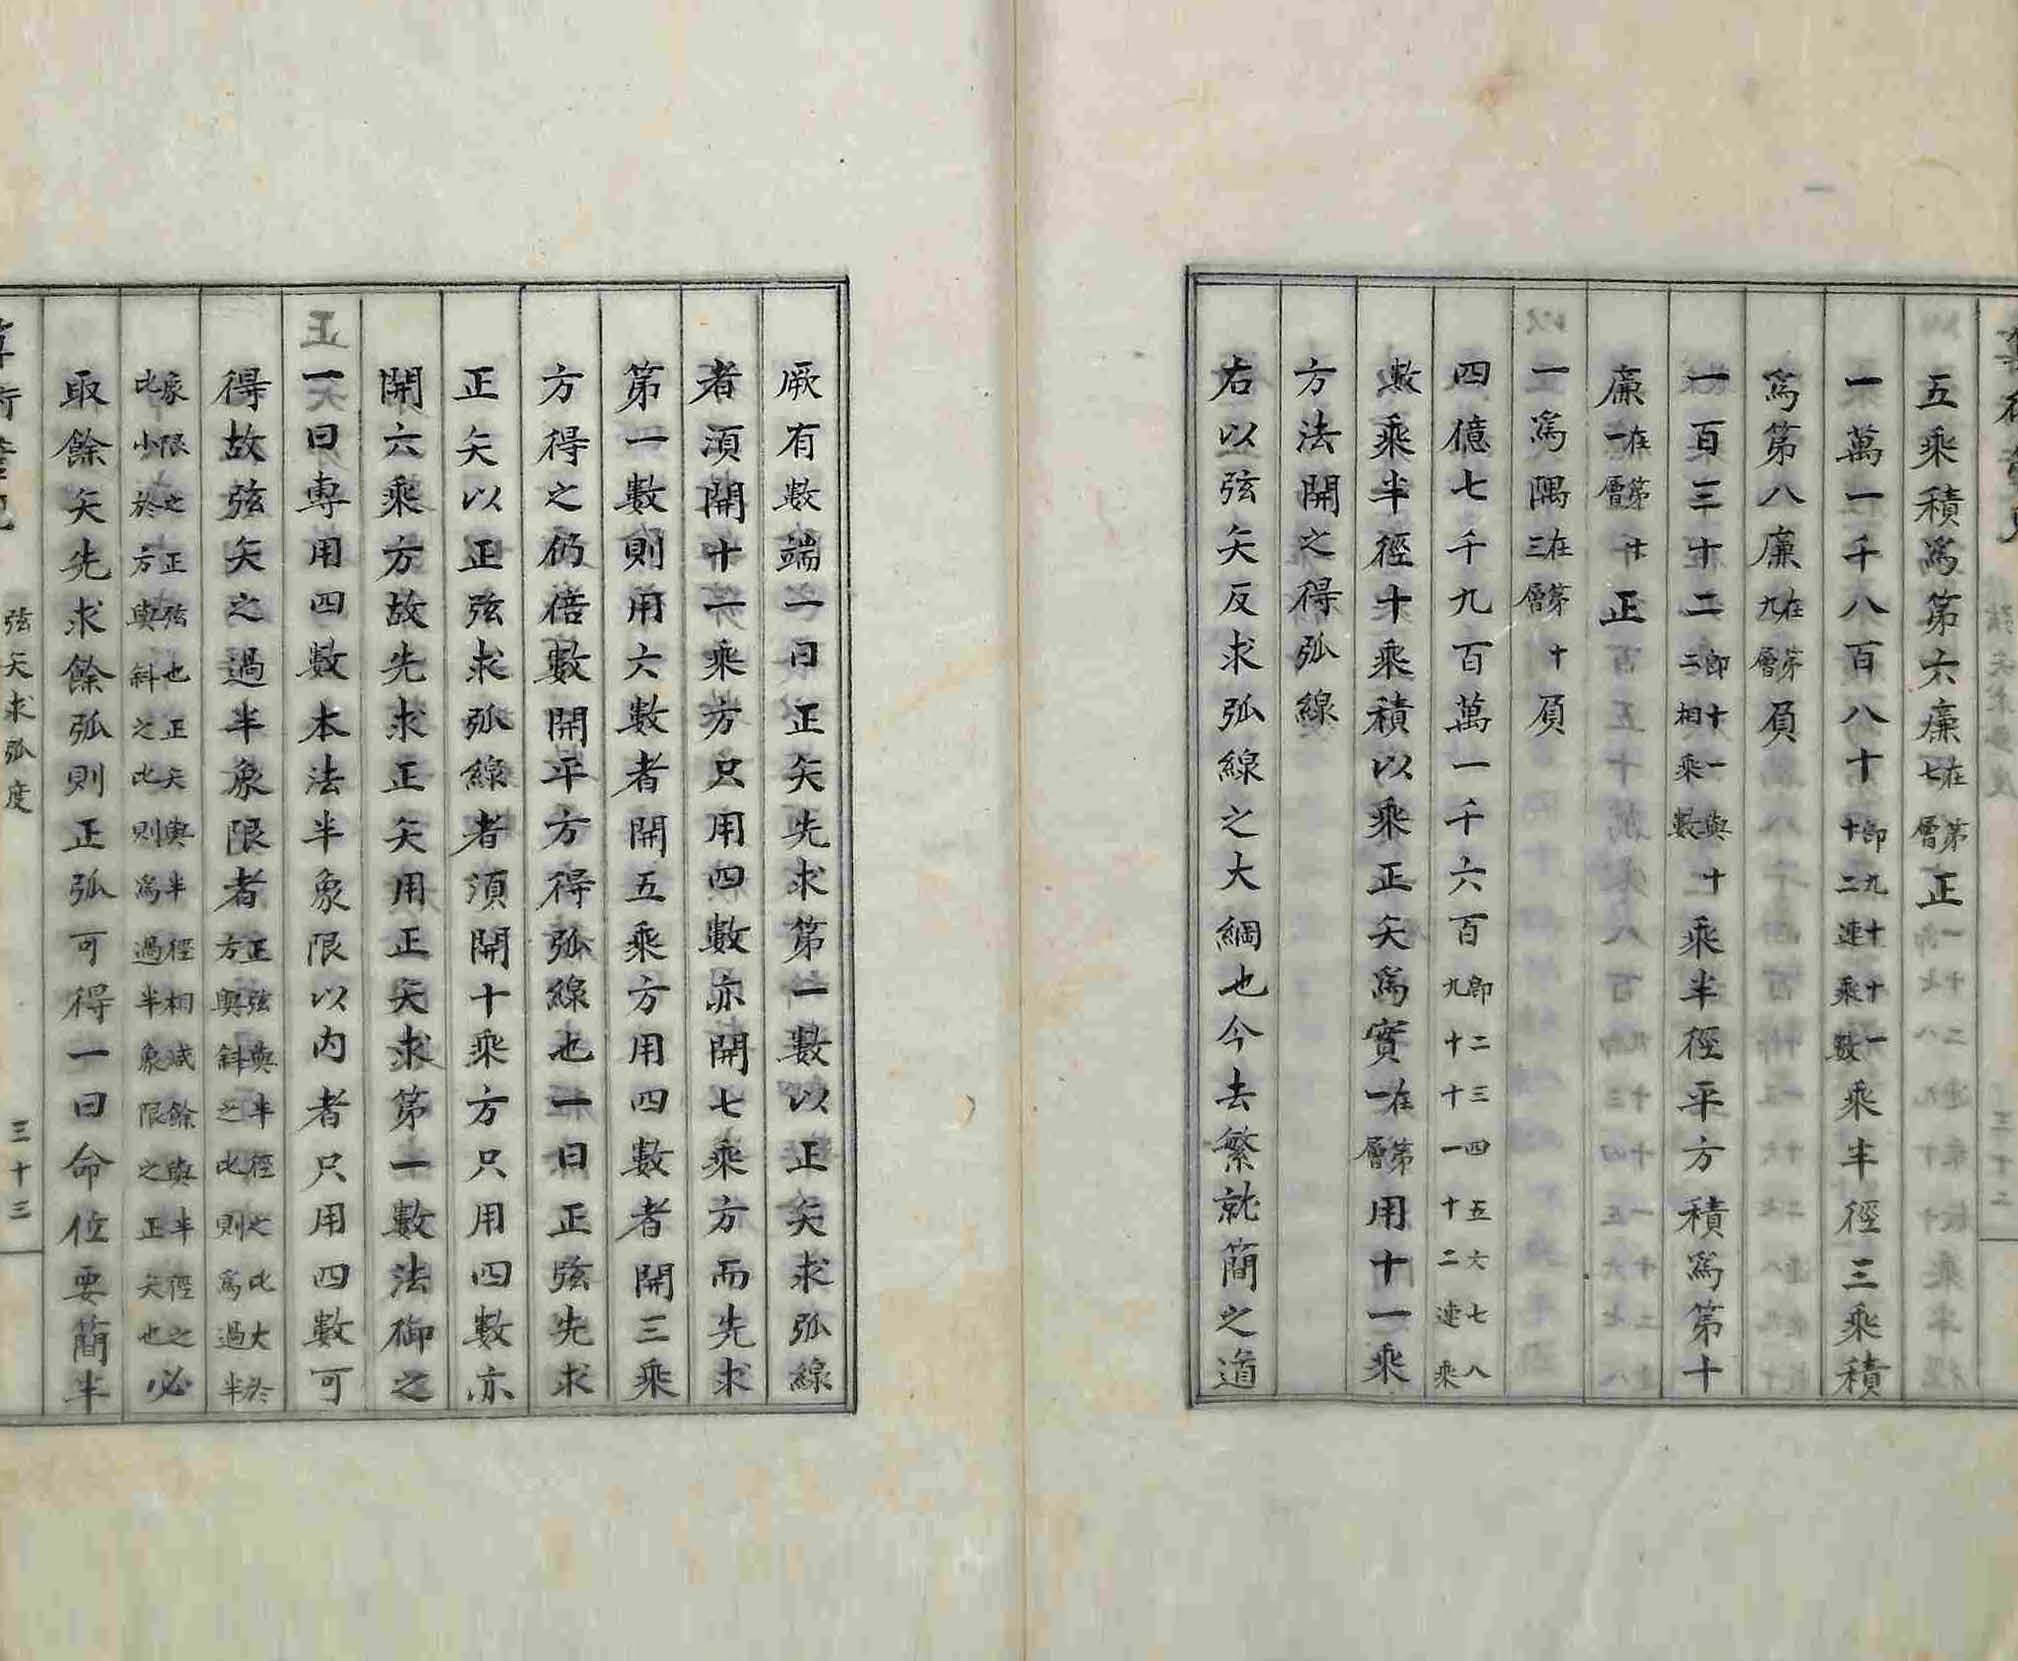 五乘積爲第六廉在第七層正
一萬一千八百八十即九十十一十二連乘數乘半徑三乘積
爲第八廉在第九層負
一百三十二即十一與十二相乘數乘半徑平方積爲第十
廉在第十一層正
一爲隅在第十三層負
四億七千九百萬一千六百即二三四五六七八九十十一十二連乘
數乘半徑十乘積以乘正矢爲實在第一層用十一乘
方法開之得弧線
右以弦矢反求弧線之大綱也今去繁就簡之道
厥有數端一曰正矢先求第一數以正矢求弧線
者須開十一乘方只用四數亦開七乘方而先求
第一數則用六數者開五乘方用四數者開三乘
方得之仍倍數開平方得弧線也一曰正弦先求
正矢以正弦求弧線者須開十乘方只用四數亦
開六乘方故先求正矢用正矢求第一數法御之
一曰專用四數本法半象限以内者只用四數可
得故弦矢之過半象限者正弦與半徑之比大於方與斜之比則爲過半
象限之正弦也正矢與半徑相減餘與半徑之比小於方與斜之比則爲過半象限之正矢也必
取餘矢先求餘弧則正弧可得一曰命位要簡半
弦矢求弧度 三十三